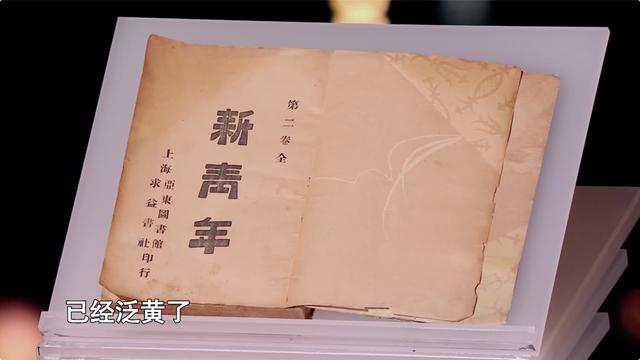 第二卷全
新青年
上海亞東圖書館
求益書社印行
已经泛黄了